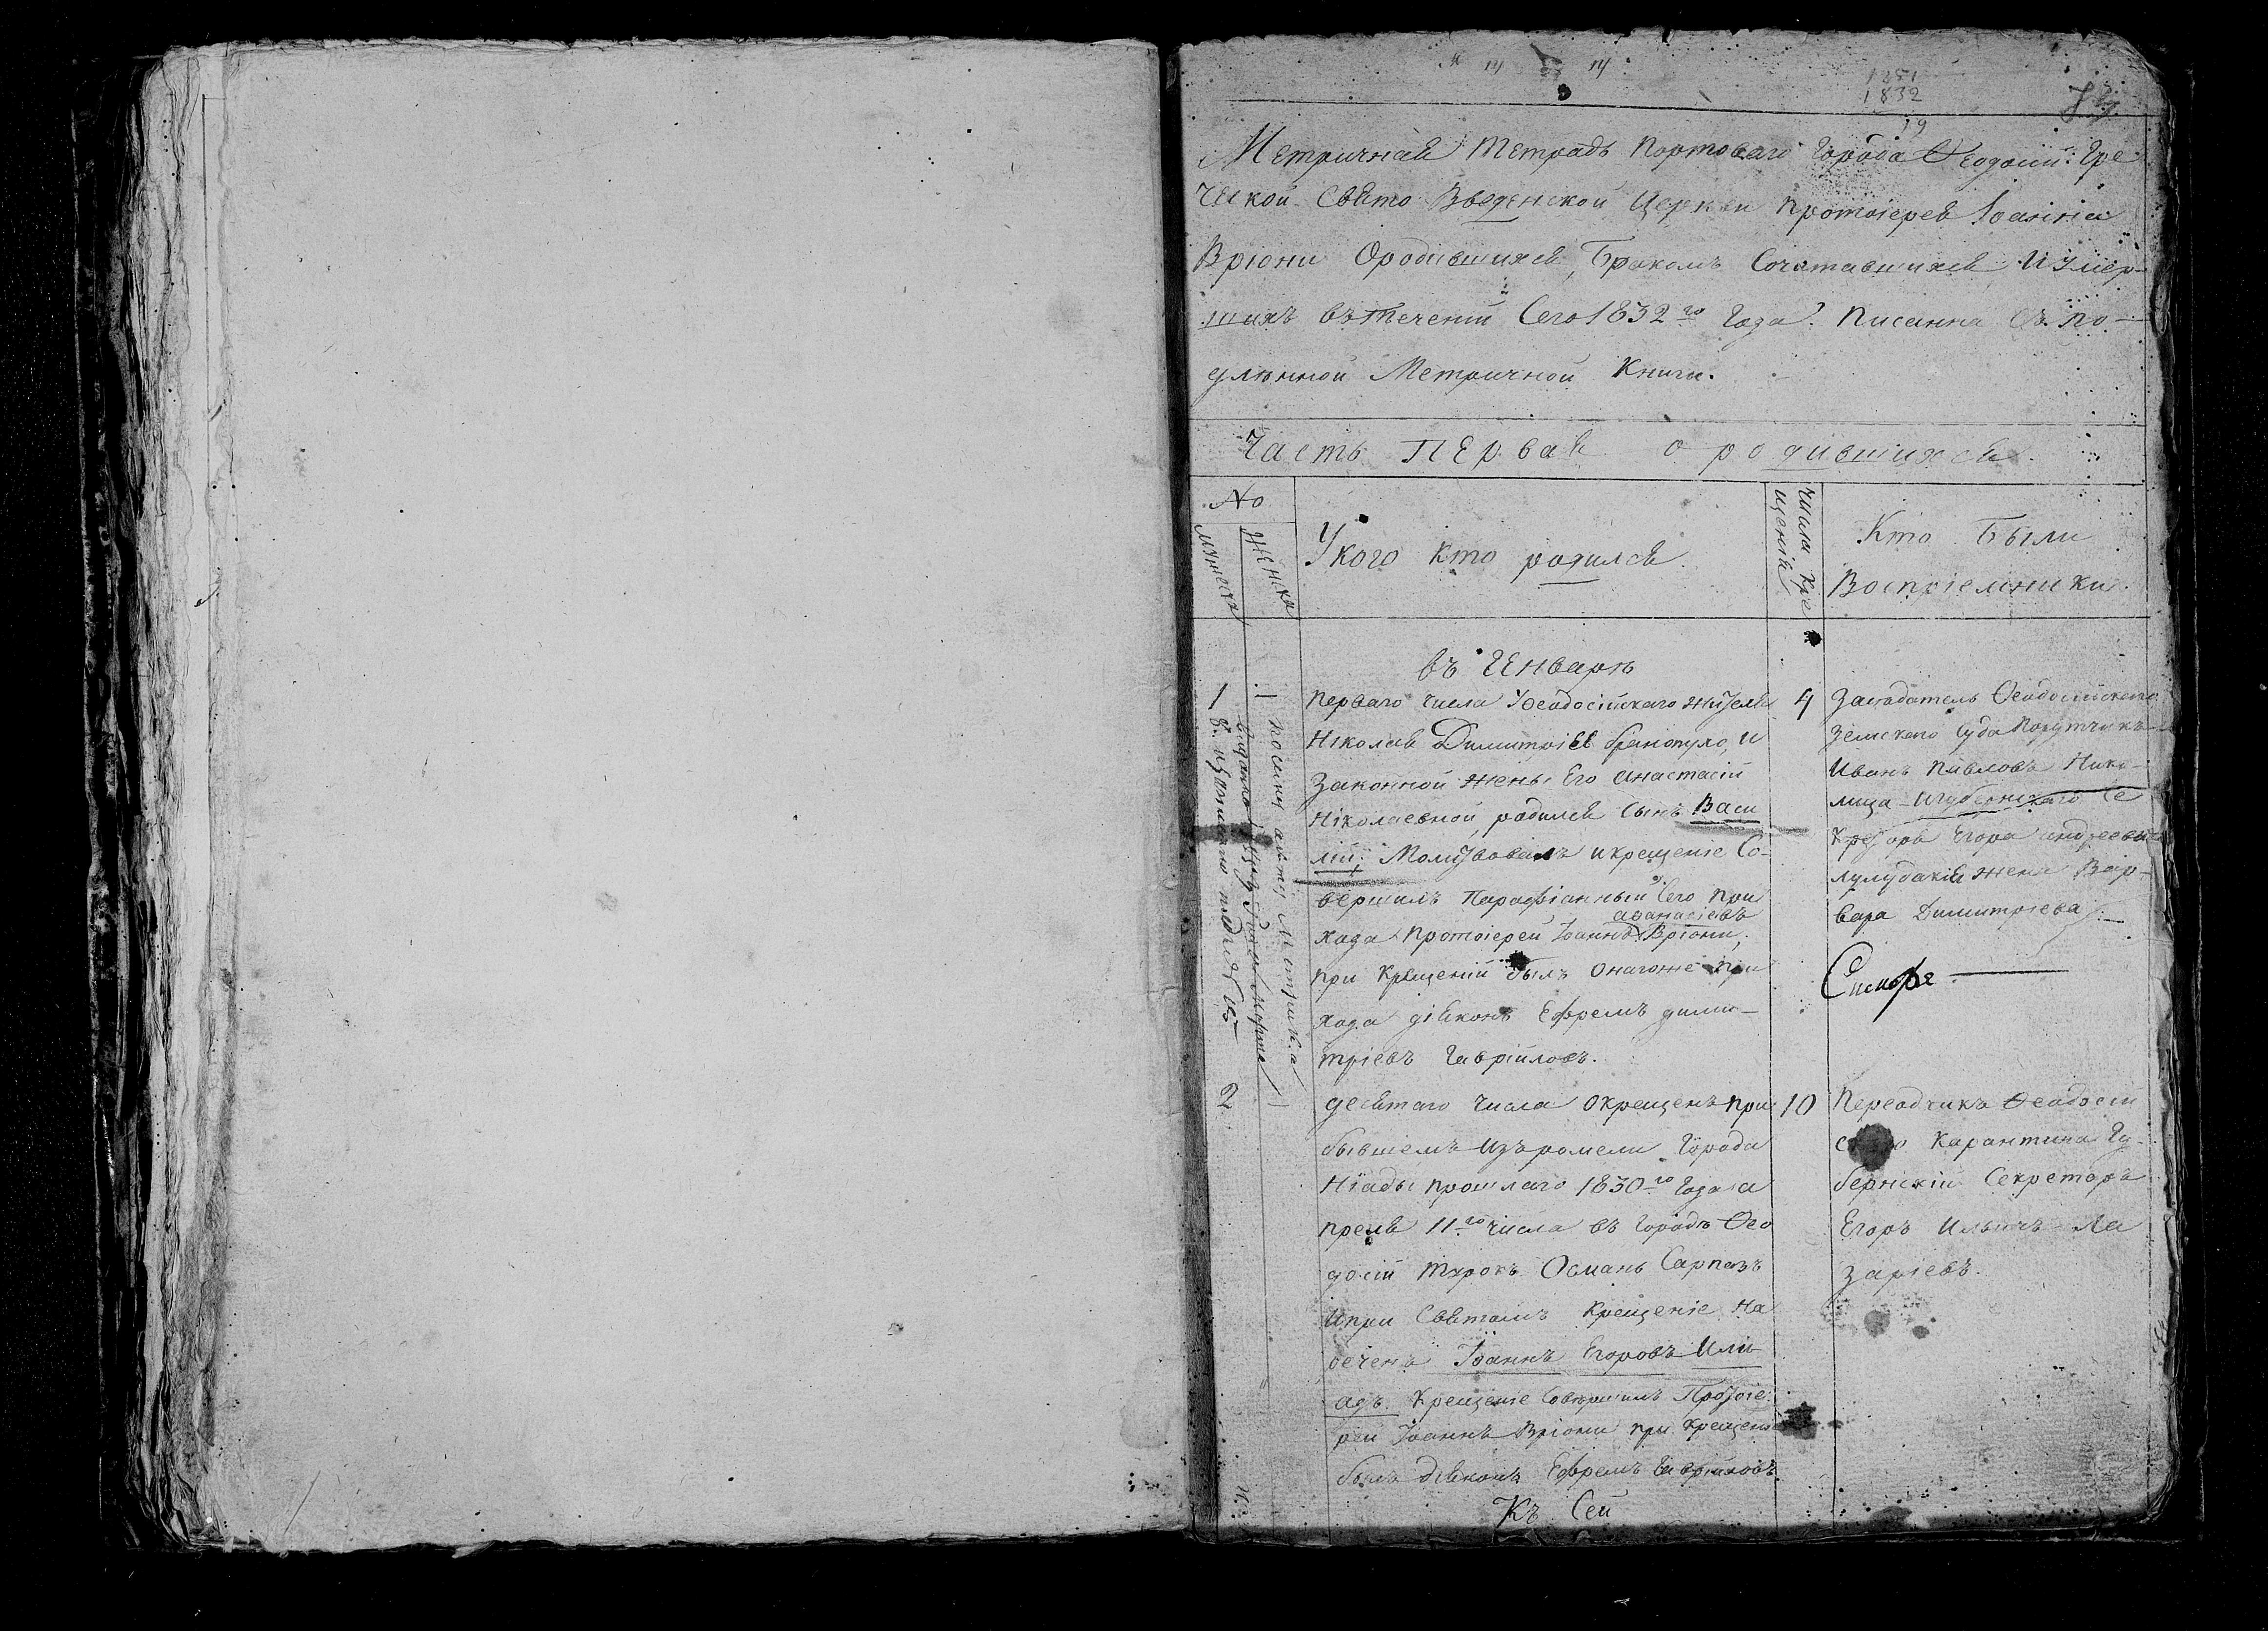 1832
19
Метричная Тетрадь Портоваго города Ѳеодосіи: Гре
ческой Свято Введенской Церкви протоіерея Іоанна
Вріони Ородившихся, Бракомъ Сочетавшихся, И Умер-
шихъ въ теченіи Сего 1832го Года. Писанна съ по-
длѣнной Метричной Книги.
Часть Первая о родившихся.
No
мужеска
женска
У кого кто родился.
числа кре
щенія
Кто Были
Воспріемники.
въ Генварѣ
1
перваго числа Ѳеодосійскаго жителя
Ніколая Димитріев и
Законной жены Его Анастасіи
Ніколаевной, родился Сынъ Васи
лій; Молитвовалъ и крещеніе Со-
вершилъ Парафіанный Сего при
аѳанасіевъ
хода Протоіерей Іоаннъ Вріони,
при Крещеніи былъ онагоже при
хода діяконъ Ефремъ дими-
тріевъ Гавріиловъ.
4
Засѣдатель Ѳеодосійскаго
Земскаго Суда Порутчикъ
Иванъ Павловъ Нико-
лица Игубернскаго Се
кретаря Егора андреевича
жена Вар-
вара Димитріева
2
десятаго числа окрещенъ при
бывшемъ изъ ромели города
Ніады прошлаго 1830го Года а
преля 11го числа въ городѣ Ѳео
досіи Османъ Сарпазъ
И при Святомъ Крещеніе На
реченъ Іоаннъ Егоровъ Или
адъ. Крещеніе Совершилъ Протоіе
рей Іоаннъ Вріони при Крещеніи
былъ Діяконъ Ефремъ Гавріиловъ.
10
Переводчикъ Ѳеодосіи
Карантина Гу
бернскій Секретарь
Егоръ Ильичъ Ла
заріевъ.
Къ Сей